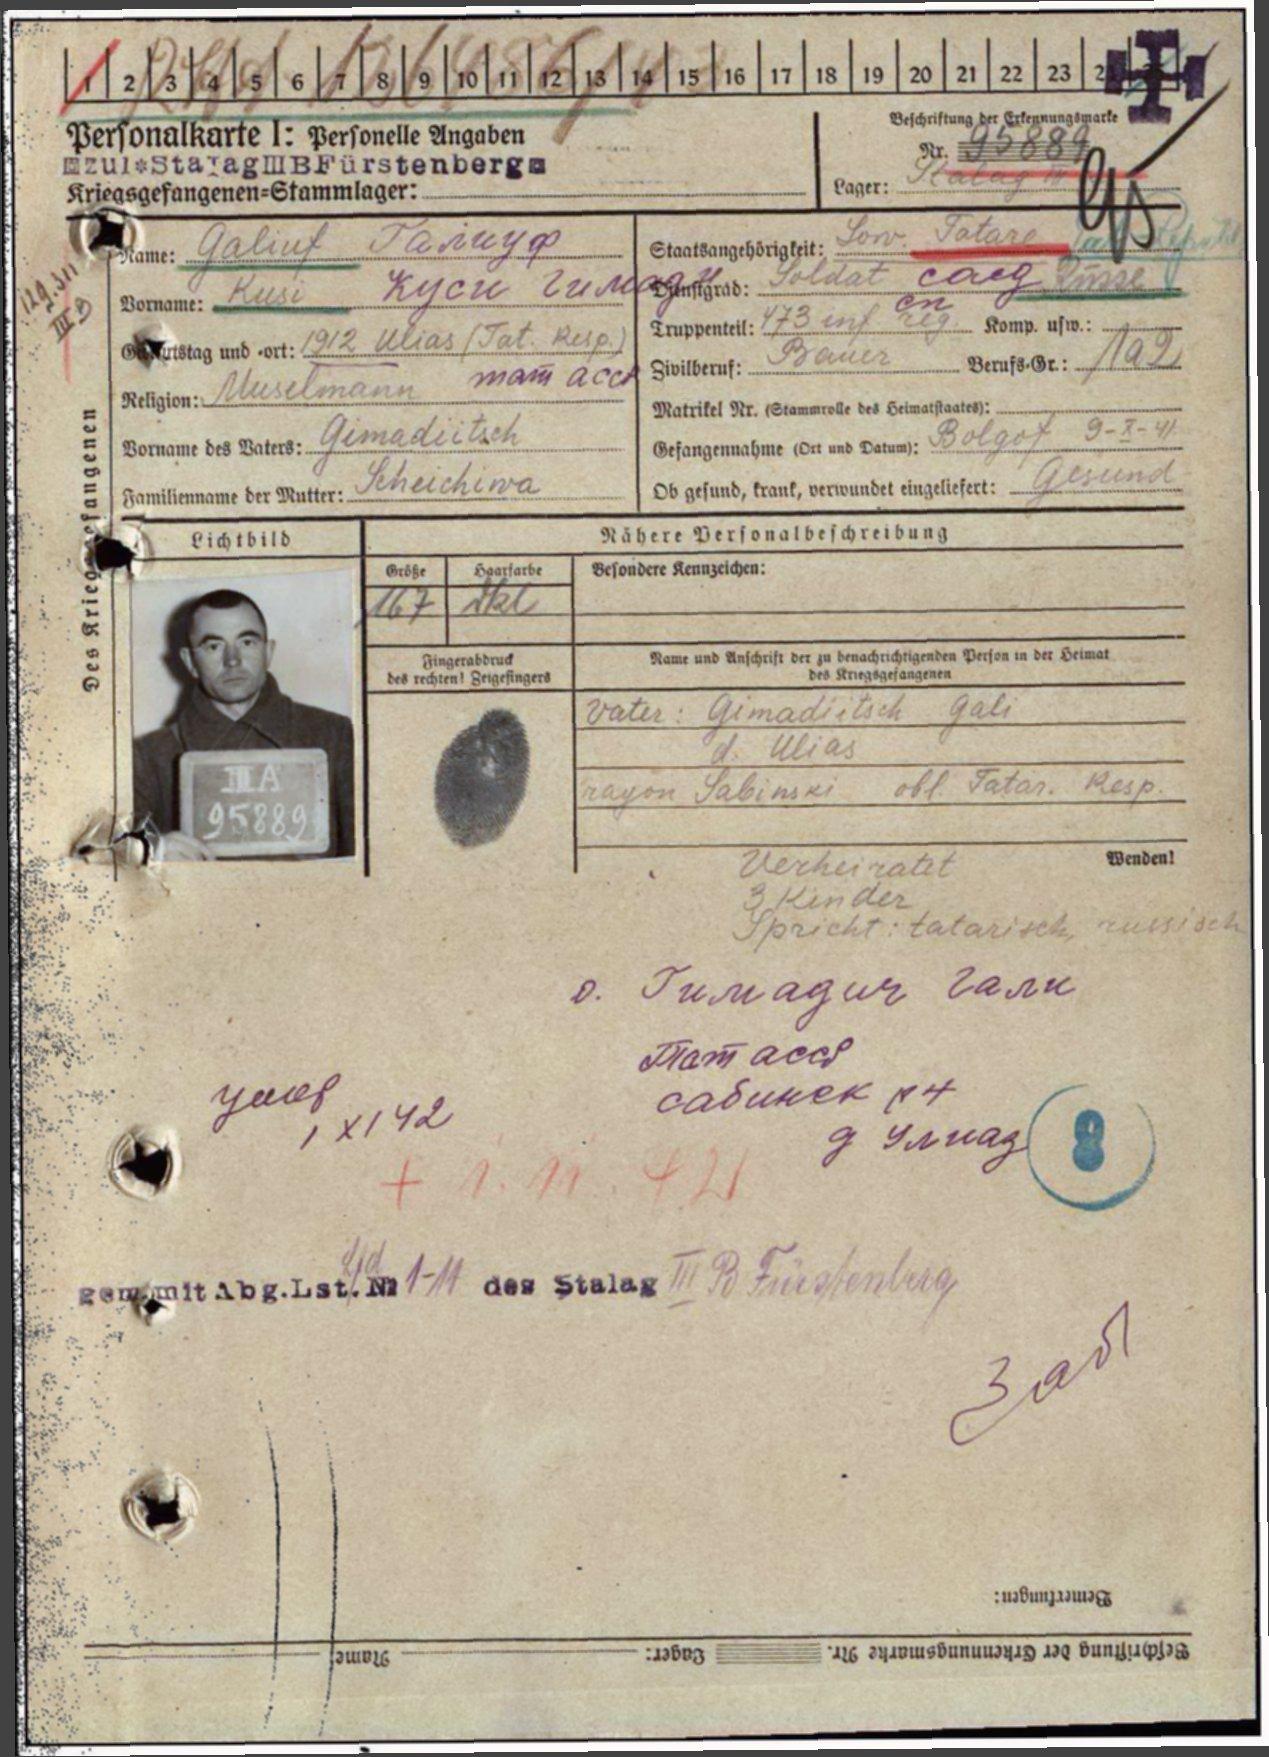 1 2 3 4 5 6 7 8 9 10 11 12 13 14 15 16 17 18 19 20 21 22 23
Personalkarte I: Personelle Angaben
zul*Stalag III B Fürstenberg
Kriegsgefangenen=Stammlager:
Beschriftung der Erkennungsmarke
Nr. 95889
Lager: Stalag III
129.311
III B
Des Kriegsgefangenen
Name: Galiuf Галиуф
Vorname: Kusi Куси Гимади
Geburtstag und -ort: 1912 Ulias (Tat. Resp.)
Religion: Muselmann тат асср
Vorname des Vaters: Gimadiitsch
Familienname der Mutter: Scheichiwa
Staatsangehörigkeit: Sow. Tatare
Dienstgrad: Soldat солд Russe
Truppenteil: 473 inf reg. сп Komp. usw.:
Zivilberuf: Bauer Berufs-Gr.: 1a2
Matrikel Nr. (Stammrolle des Heimatstaates):
Gefangennahme (Ort und Datum): Bolgof 9-X-41
Ob gesund, krank, verwundet eingeliefert: Gesund
Lichtbild
Nähere Personalbeschreibung
Größe
Haarfarbe
Besondere Kennzeichen:
167
dkl
Fingerabdruck
des rechten! Zeigefingers
Name und Anschrift der zu benachrichtigenden Person in der Heimat
des Kriegsgefangenen
III A
95889
Vater: Gimadiitsch Gali
d. Ulias
rayon Sabinski obl. Tatar. Resp.
Wenden!
Verheiratet
3 Kinder
Spricht: tatarisch, russisch
о. Гимадич Гали
Тат асср
сабинск р-н
д Улиаз
умер
1 XI 42
8
+ 1. 11. 42
gem. mit Abg.Lst. № 1-11 des Stalag III B Fürstenberg
Заб
Bemerkungen:
Beschriftung der Erkennungsmarke Nr. Lager: Name